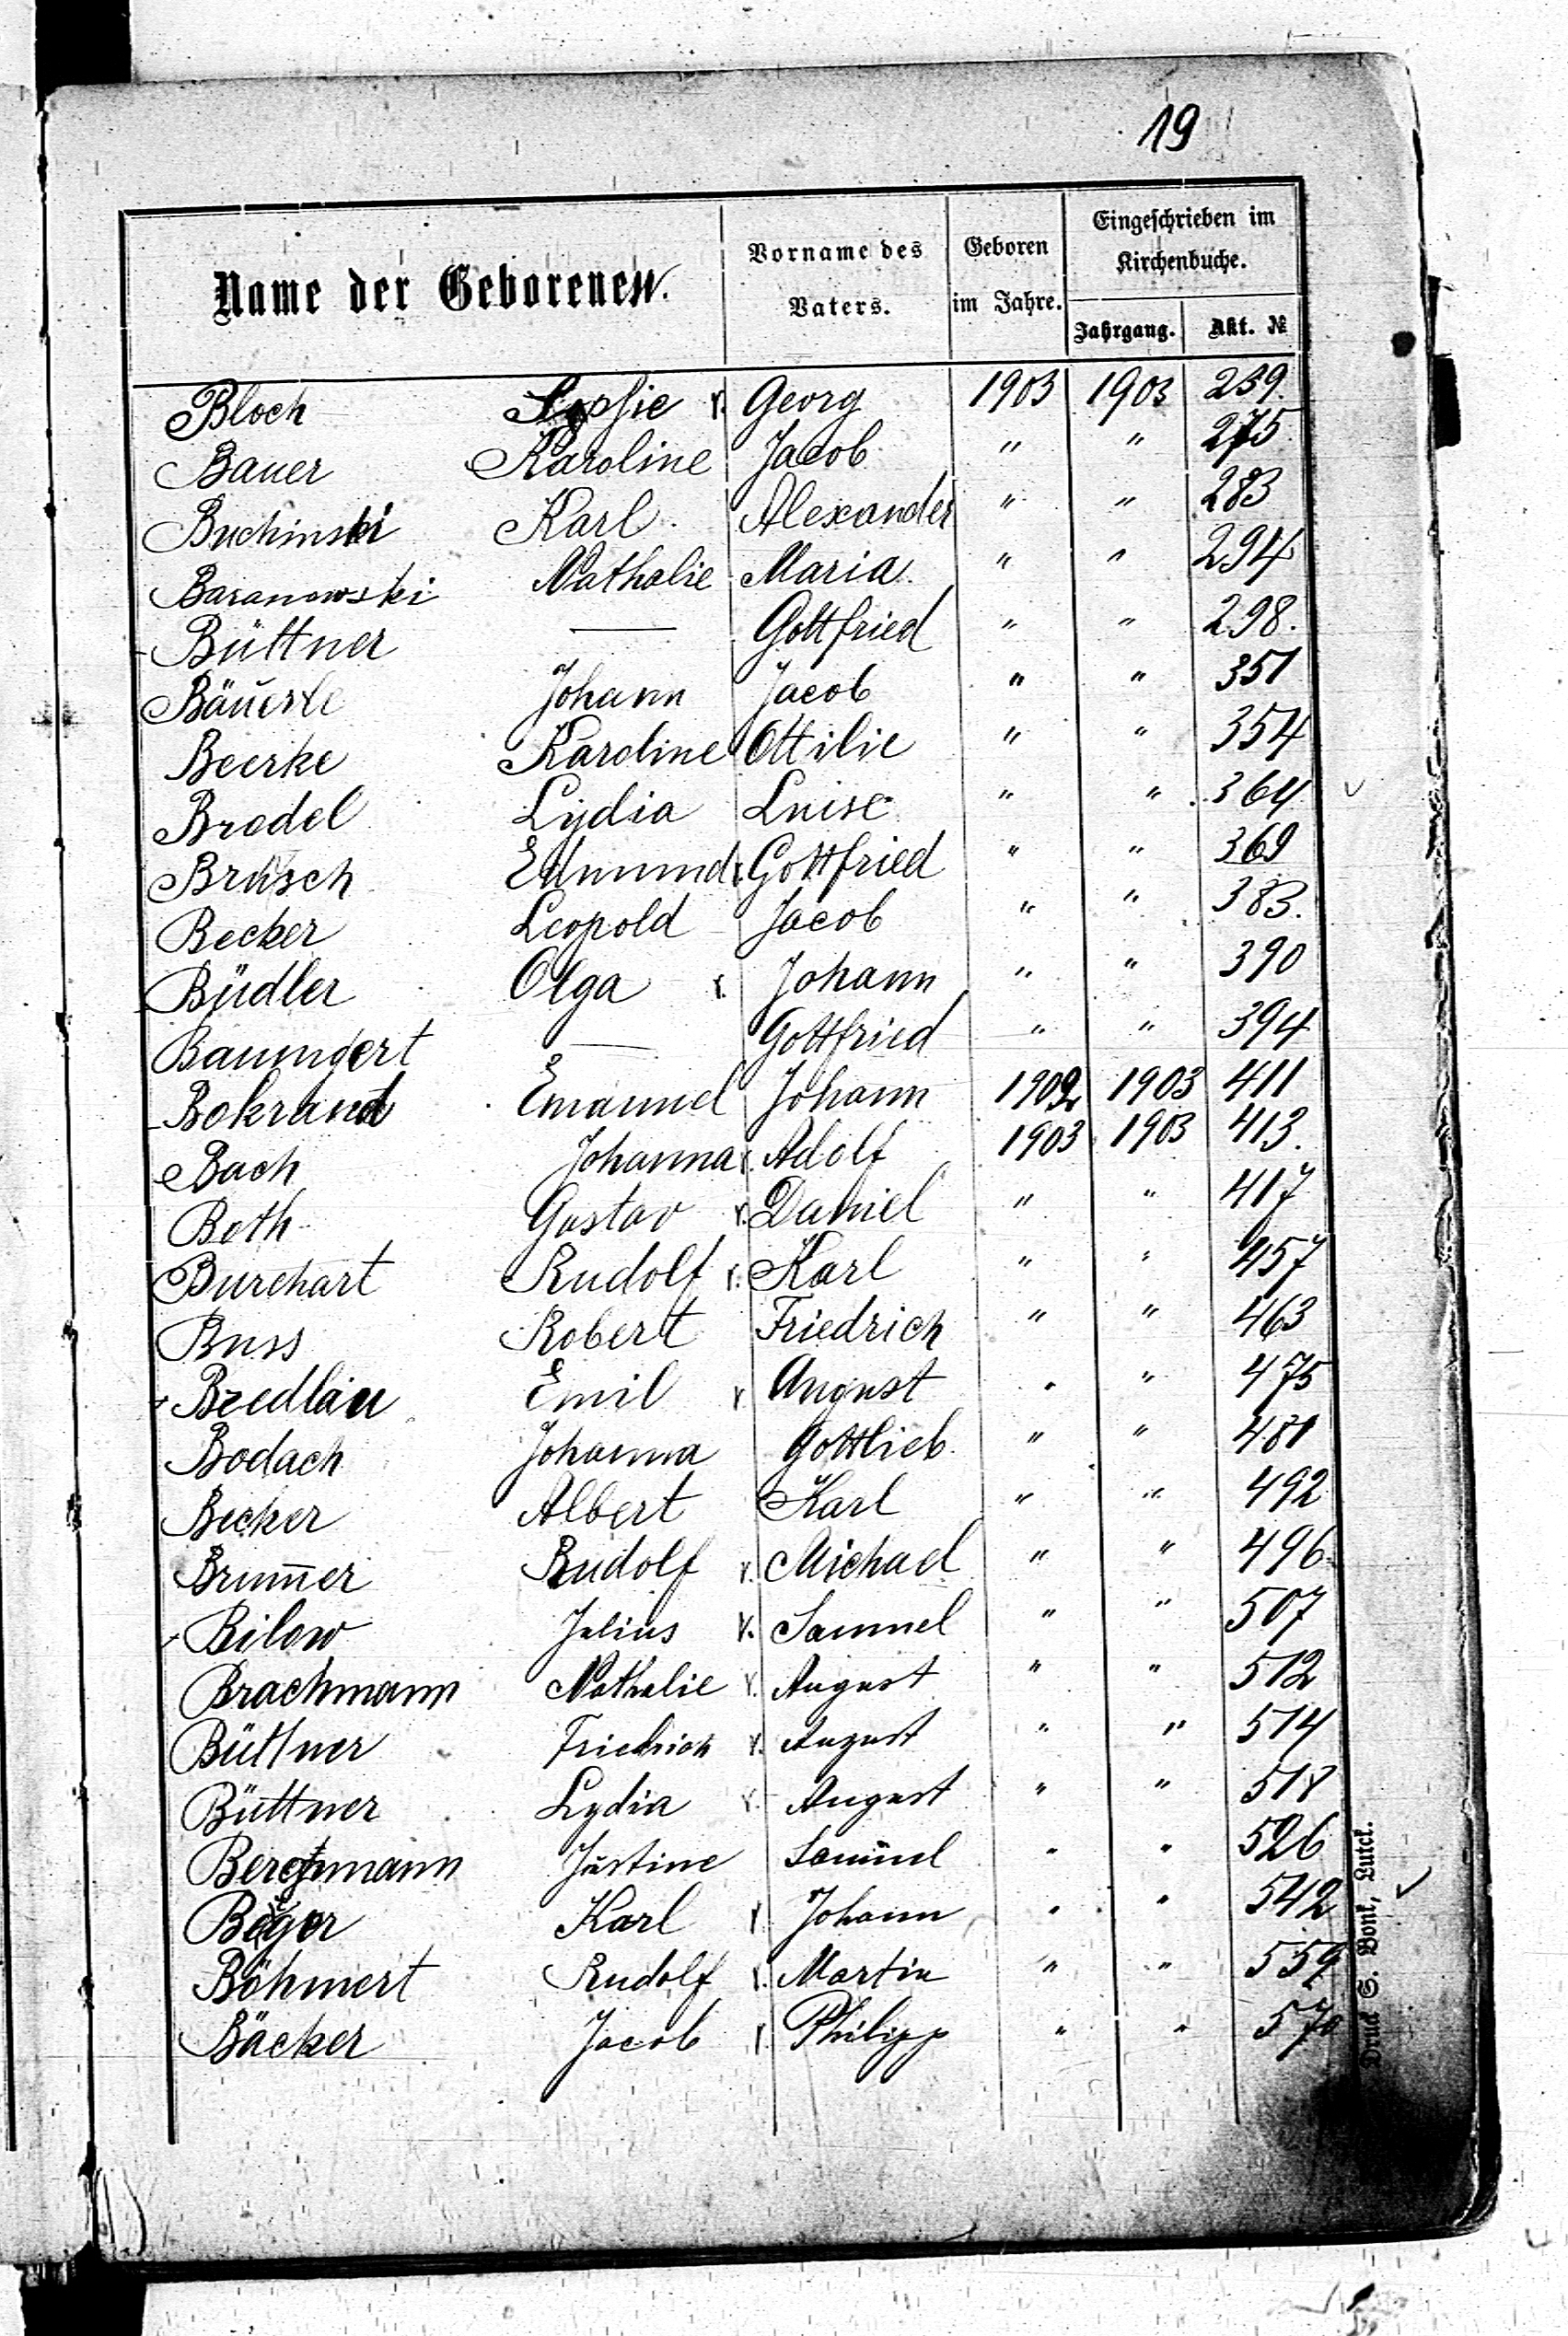 19
Name der Geborenen.
Vorname des Vaters.
Geboren im Jahre.
Eingeschrieben im Kirchenbuche.
Jahrgang.
Akt. №
Bloch Sophie Georg 1903 1903 239.
Bauer Karoline Jacob " " 275
Buchinski Karl Alexander " " 283
Baranowski Nathalie Maria " " 294
Büttner — Gottfried " " 298.
Bäuerle Johann Jacob " " 351
Beerke Karoline Ottilie " " 354
Bredel Lydia Luise " " 364
Brüsch Edmund Gottfried " " 369
Becker Leopold Jacob " " 383.
Büdler Olga Johann " " 390
Baumgert — Gottfried " " 394
Bokrand Emanuel Johann 1902 1903 411
Bach Johanna Adolf 1903 1903 413.
Both Gustav Daniel " " 417
Burchart Rudolf Karl " " 457
Buss Robert Friedrich " " 463
Bredlau Emil August " " 475
Bodach Johanna Gottlieb " " 481
Becker Albert Karl " " 492
Brum̅er Rudolf Michael " " 496
Bilow Julius Samuel " " 507
Brachmann Nathalie August " " 512
Büttner Friedrich August " " 514
Büttner Lydia August " " 518
Bergmann Justine Samuel " " 526
Karl Johann " " 542
Böhmert Rudolf Martin " " 559
Bäcker Jacob Philipp " " 570
Druck S. Bonk, Lutck.